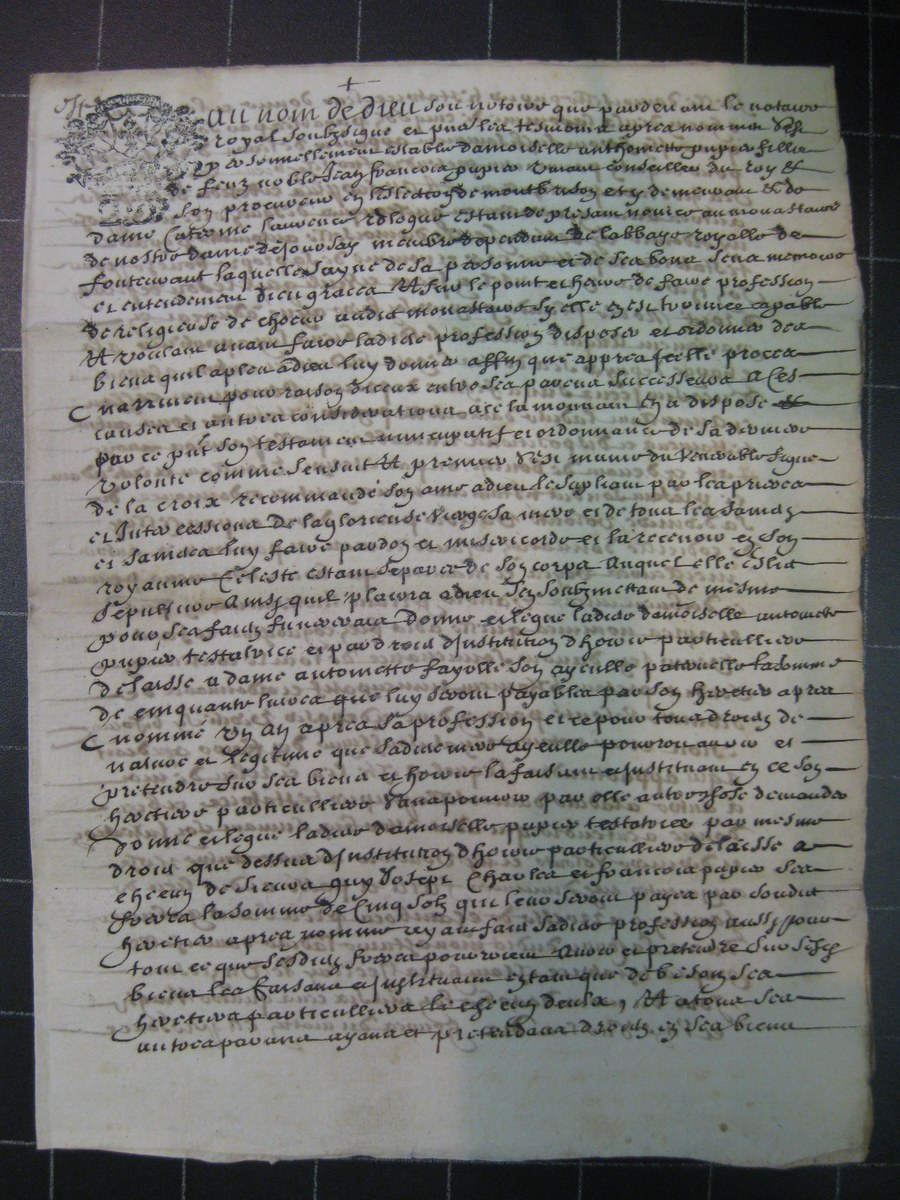 au nom de dieu soit notoire que pardevant le notaire
royal soubzsigné et pnts les tesmoins apres nommes s'est
personnellement establie damoiselle anthoinette pupier fillie
de feuz noble Jean francois pupier vivant conseiller du roy et
son procureur en l'eslection de montbrison et y demeurant et de
dame Caterine laurence rd laquelle estant de presant novice au monastaire
de nostre dame de jourssay membre dependant de labbaye royalle de
fontevraut laquelle sayne de sa personne et de ses bons sens memoire
et entendement dieu graces Et sur le point et heure de faire profession
de religieuse de choeur audit monastaire sy elle en est trouvée capable
Et voulant avant faire ladite profession disposer et ordonner des
biens quil a pleu a dieu luy donner affin que appres icelle proces
n'arrivent pour raison d'iceux entre ses parens successeurs a ces
causes et autres considerations a ce la mouvant en a disposé
par ce pnt son testament nuncupatif et ordonnance de sa derniere
volonté comme s'ensuit Et premier s'est munie du venerable signe
de la croix recommandé son ame a dieu le supliant par les prieres
et intercessions de la glorieuse vierge sa mere et de tous les saints
et saintes luy faire pardon et misericorde et la recevoir en son
royaume celeste estant separée de son corps auquel elle eslit
sepulture ainsy quil plaira a dieu s'en soubzmettant de mesme
pour ses faits funeraux donne et legue ladite damoiselle antoinette
pupier testatrice et par droit d'institution d'hoirie particulliere
delaisse a dame antoinette fayolle son ayeulle paternelle la somme
de cinquante livres que luy seront payables par son heretier apres
nommé un an apres sa profession et ce pour tous droits de
nature et legitime que sadite mere ayeulle pourroit avoir et
pretendre sur ses biens et hoirie la faisant et instituant en ce son
heretiere particulliere sans pouvoir par elle autre chose demander
donne et legue ladite damoiselle pupier testatrice par mesme
droit que dessus d'institution d'hoirie particulliere delaisse a
chacun de sieurs guy Joseph Charles et francois pupier ses
freres la somme de cinq solz qui leur seront payes par sondit
heretier apres nommé ayant fait sadite profession aussy pour
tout ce que sesdits freres pourroient avoir et pretendre sur sesd
biens les faisant et instituant en tant que de besoin ses
heretiers particulliers le chacun deulx, Et a tous ses
autres parans ayans et pretendans droits en ses biens